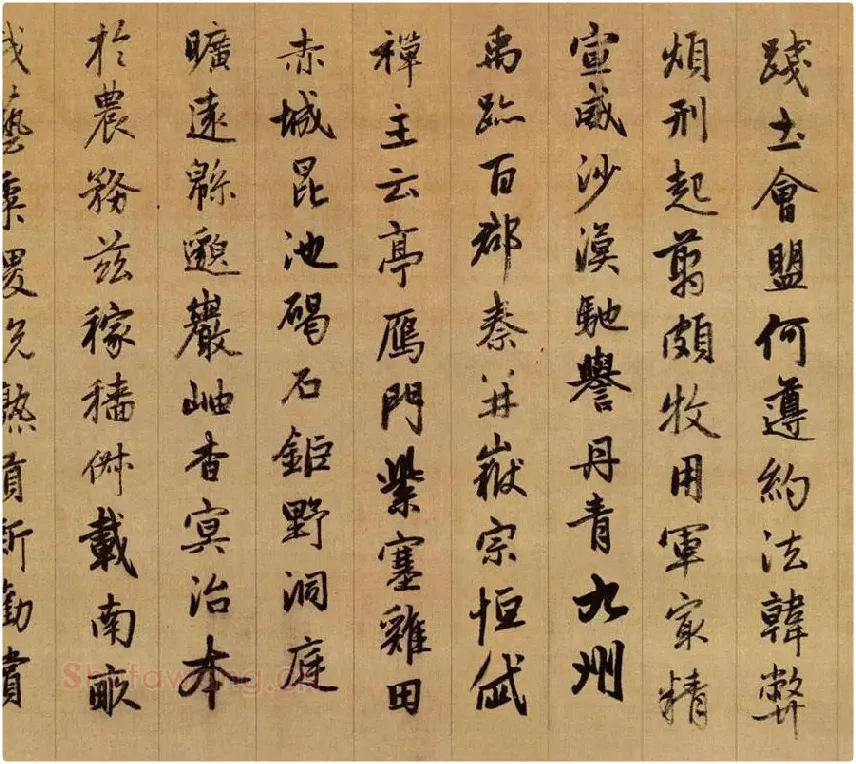 踐土會盟何遵約法韓弊
煩刑起翦頗牧用軍冣精
宣威沙漠馳譽丹青九州
禹跡百郡秦并嶽宗恒岱
禪主云亭鴈門紫塞雞田
赤城昆池碣石鉅野洞庭
曠遠緜邈巖岫杳冥治本
於農務茲稼穡俶載南畝
我藝黍稷稅熟貢新勸賞
Shufawang.cn